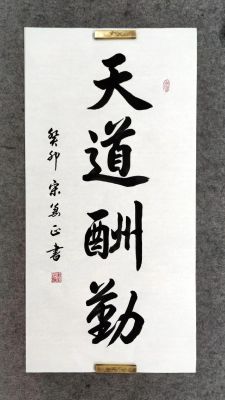 天道酬勤
癸卯 宗万正书